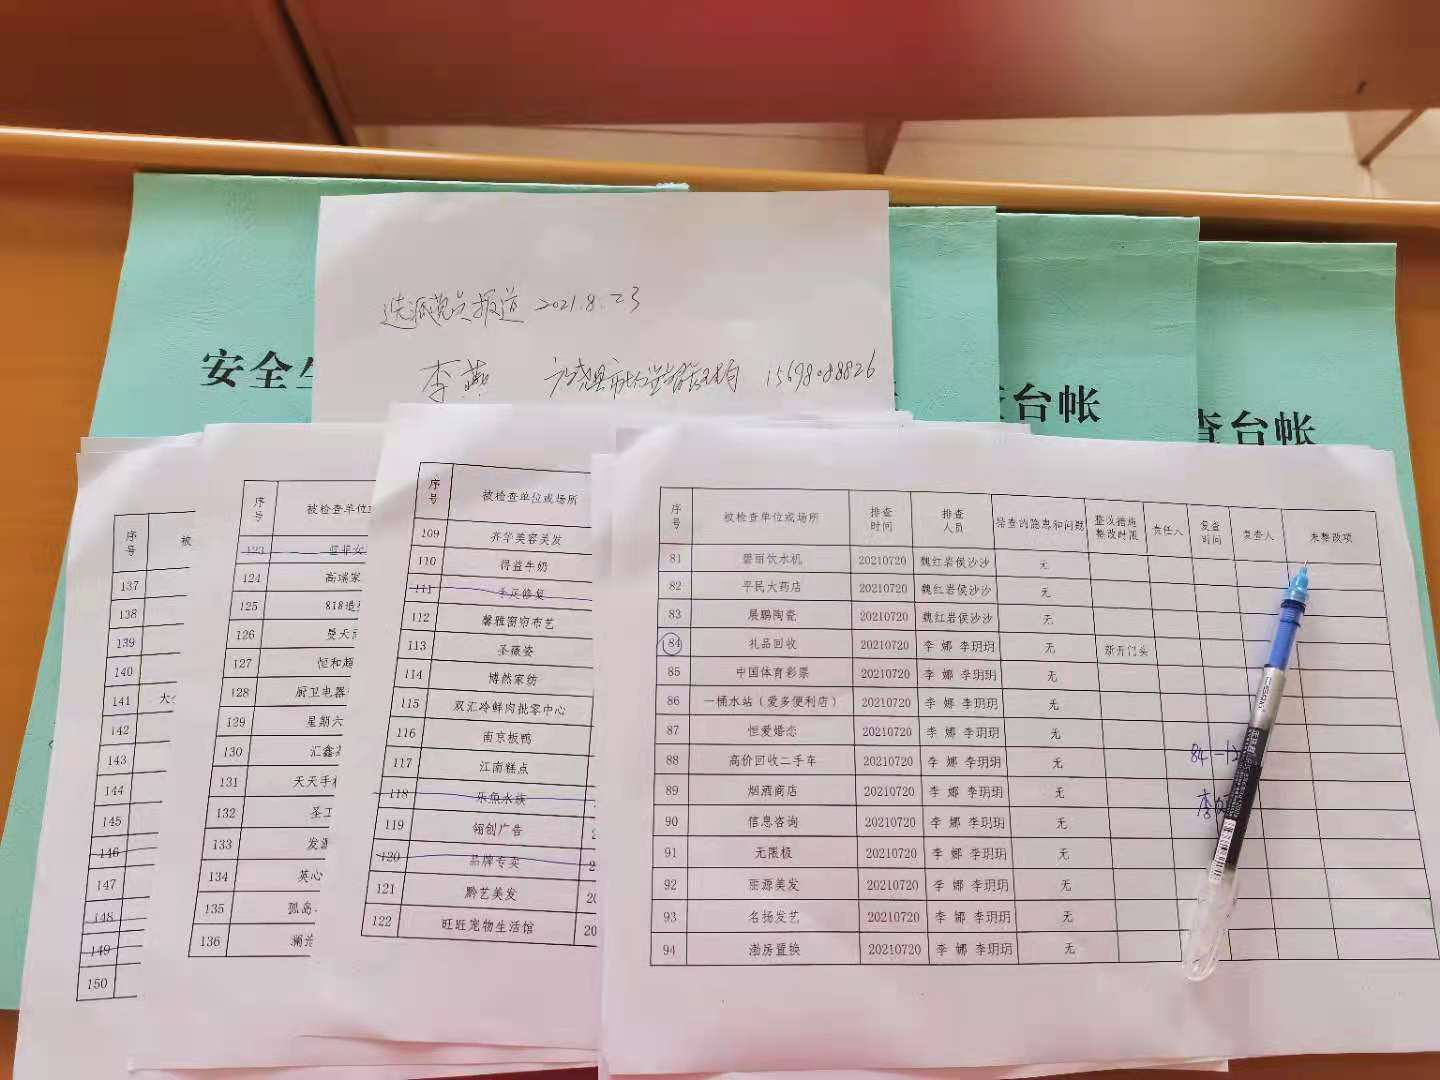 安全生
查台帐
查台帐
选派党员报道 2021.8.23
李燕 15698088826
序号 被
137
138
139
140
141 大
142
143
144
145
146
147
148
149
150
序号 被检查单位
123
124 高瑞家
125 818造
126 曼天
127 恒和超
128 厨卫电器
129 星期六
130 汇鑫
131 天天手
132 圣
133 发
134 英心
135 孤岛
136 澜
序号 被检查单位或场所
109 齐华美容美发
110 得益牛奶
111 手足修复
112 馨雅窗帘布艺
113 圣薇姿
114 博然家纺
115 双汇冷鲜肉批零中心
116 南京板鸭
117 江南糕点
118 乐鱼水族
119 翎创广告
120 品牌专卖
121 黔艺美发 20
122 旺旺宠物生活馆 20
序号 被检查单位或场所 排查时间 排查人员 排查的隐患和问题 整改措施整改时限 责任人 复查时间 复查人 未整改项
81 碧丽饮水机 20210720 魏红岩侯沙沙 无
82 平民大药店 20210720 魏红岩侯沙沙 无
83 晨鹏陶瓷 20210720 魏红岩侯沙沙 无
84 礼品回收 20210720 李 娜 李玥玥 无 新开门头
85 中国体育彩票 20210720 李 娜 李玥玥 无
86 一桶水站（爱多便利店） 20210720 李 娜 李玥玥 无
87 恒爱婚恋 20210720 李 娜 李玥玥 无
88 高价回收二手车 20210720 李 娜 李玥玥 无
89 烟酒商店 20210720 李 娜 李玥玥 无
90 信息咨询 20210720 李 娜 李玥玥 无
91 无限极 20210720 李 娜 李玥玥 无
92 丽源美发 20210720 李 娜 李玥玥 无
93 名扬发艺 20210720 李 娜 李玥玥 无
94 渤房置换 20210720 李 娜 李玥玥 无
84
李